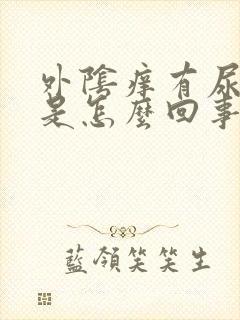 外陰痒有尿
是怎麼回事
藍領笑笑生